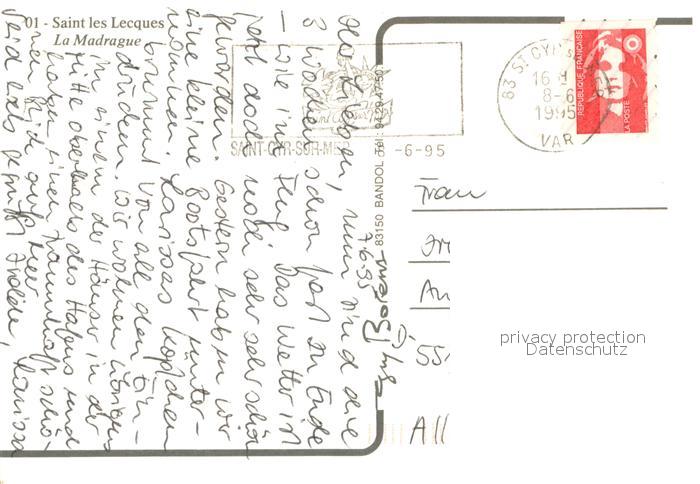 01 - Saint les Lecques
La Madrague
SAINT-CYR-SUR-MER
-6-95
83 ST CYR S
16 H
8-6
1995
VAR
REPUBLIQUE FRANÇAISE
LA POSTE
83150 BANDOL
7.6.95
nun sind die
3 Wochen schon fast zu Ende
- wie im Flug. Das Wetter ist
jetzt doch noch sehr sehr schön
geworden. Gestern haben wir
eine kleine Bootsfahrt unter-
nommen. Larissas Köpfchen
brummt von all den Ein-
drücken. Wir wohnen übrigens
in einem der Häuser in der
Mitte oberhalb des Hafens und
haben einen traumhaft schö-
nen Blick aufs Meer.
Seid lieb gegrüßt
Larissa
Frau
All
privacy protection
Datenschutz